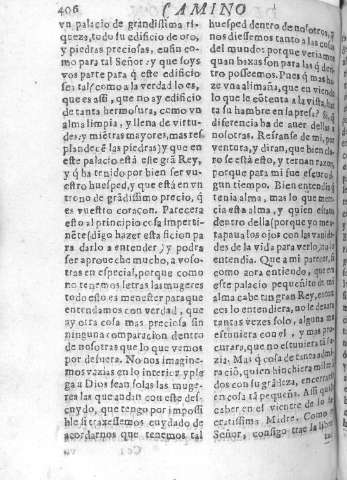 406
CAMINO
vn palacio de grãdissima ri-
queza, todo su edificio de oro,
y piedras preciosas, en fin co-
mo para tal Señor: y que soys
vos parte para q̃ este edificio
sea tal (como a la verdad lo es,
que es assi, que no ay edificio
de tanta hermosura, como vn
alma limpia, y llena de virtu-
des: y miẽtras mayores, mas res
plandecẽ las piedras) y que en
este palacio està este grã Rey,
y q̃ ha tenido por bien ser vu
estro huesped, y que està en vn
trono de grãdissimo precio, q̃
es vuestro coraçon. Parecera
esto al principio cosa imperti-
nẽte (digo hazer esta ficion pa
ra darlo a entender) y podra
ser aproueche mucho, a voso-
tras en especial, porque como
no tenemos letras las mugeres
todo esto es menester para que
entendamos con verdad, que
ay otra cosa mas preciosa sin
ninguna comparacion dentro
de nosotras que lo que vemos
por defuera. No nos imagine-
mos vazias en lo interior y pleg
a Dios sean solas las muge-
res las que andan con este des-
cuydo, que tengo por impossi
ble si traxessemos cuydado de
acordarnos que tenemos tal
huesped dentro de nosotras, y
nos diessemos tanto a las cosas
del mundo: porque veriamos
quan baxas son para las q̃ den
tro posseemos. Pues q̃ mas ha-
ze vna alimaña, que en viendo
lo que le cõtenta a la vista, har
ta su hambre en la presa? Si, q̃
diferencia ha de auer dellas a
nosotras. Reyranse de mi, por
ventura, y diran, que bien cla-
ro se està esto, y ternan razon,
porque para mi fue escuro al-
gun tiempo. Bien entendia q̃
tenia alma, mas lo que mere-
cia esta alma, y quien estaua
dentro della (porque yo me
tapaua los ojos con las vanida
des de la vida para verlo) no lo
entendia. Que a mi parecer, si
como aora entiendo, que en
este palacio pequeñito de mi
alma cabe tan gran Rey, enton
ces lo entendiera, no le dexara
tantas vezes solo, alguna me
estuuiera con el, y mas pro-
curara, que no estuuiera tã su-
zia. Mas q̃ cosa de tanta admi-
raciõ, quien hinchiera mil mũ
dos con su grãdeza, encerrarse
en cosa tã pequeña. Assi quiso
caber en el vientre de su sa-
cratissima Madre. Como es
Señor, consigo trae la liber